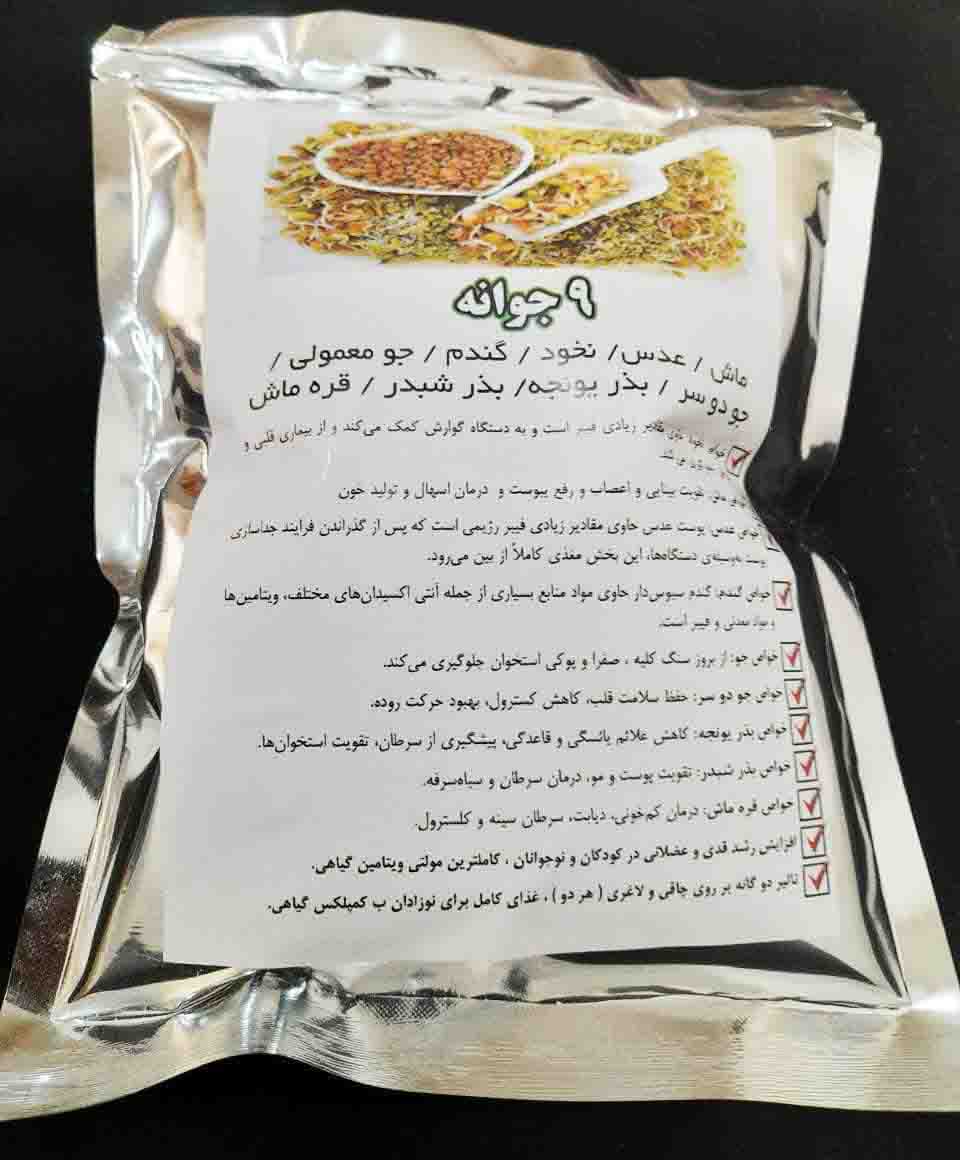 ۹ جوانه
ماش / عدس/ نخود / گندم / جو معمولی /
جو دو سر / بذر یونجه/ بذر شبدر / قره ماش
خواص نخود: حاوی مقادیر زیادی فیبر است و به دستگاه گوارش کمک می‌کند و از بیماری قلبی و
می شد.
خواص ماش: تقویت بینایی و اعصاب و رفع یبوست و درمان اسهال و تولید خون
خواص عدس: پوست عدس حاوی مقادیر زیادی فیبر رژیمی است که پس از گذراندن فرایند جداسازی
پوست به‌وسیله‌ی دستگاه‌ها، این بخش مغذی کاملاً از بین می‌رود.
خواص گندم: گندم سبوس‌دار حاوی مواد منابع بسیاری از جمله آنتی اکسیدان‌های مختلف، ویتامین‌ها
و مواد معدنی و فیبر است.
خواص جو: از بروز سنگ کلیه ، صفرا و پوکی استخوان جلوگیری می‌کند.
خواص جو دو سر: حفظ سلامت قلب، کاهش کسترول، بهبود حرکت روده.
خواص بذر یونجه: کاهش علائم یائسگی و قاعدگی، پیشگیری از سرطان، تقویت استخوان‌ها.
خواص بذر شبدر: تقویت پوست و مو، درمان سرطان و سیاه‌سرفه.
خواص قره ماش: درمان کم‌خونی، دیابت، سرطان سینه و کلسترول.
افزایش رشد قدی و عضلانی در کودکان و نوجوانان ، کاملترین مولتی ویتامین گیاهی.
تاثیر دو گانه بر روی چاقی و لاغری ( هر دو ) ، غذای کامل برای نوزادان ب کمپلکس گیاهی.